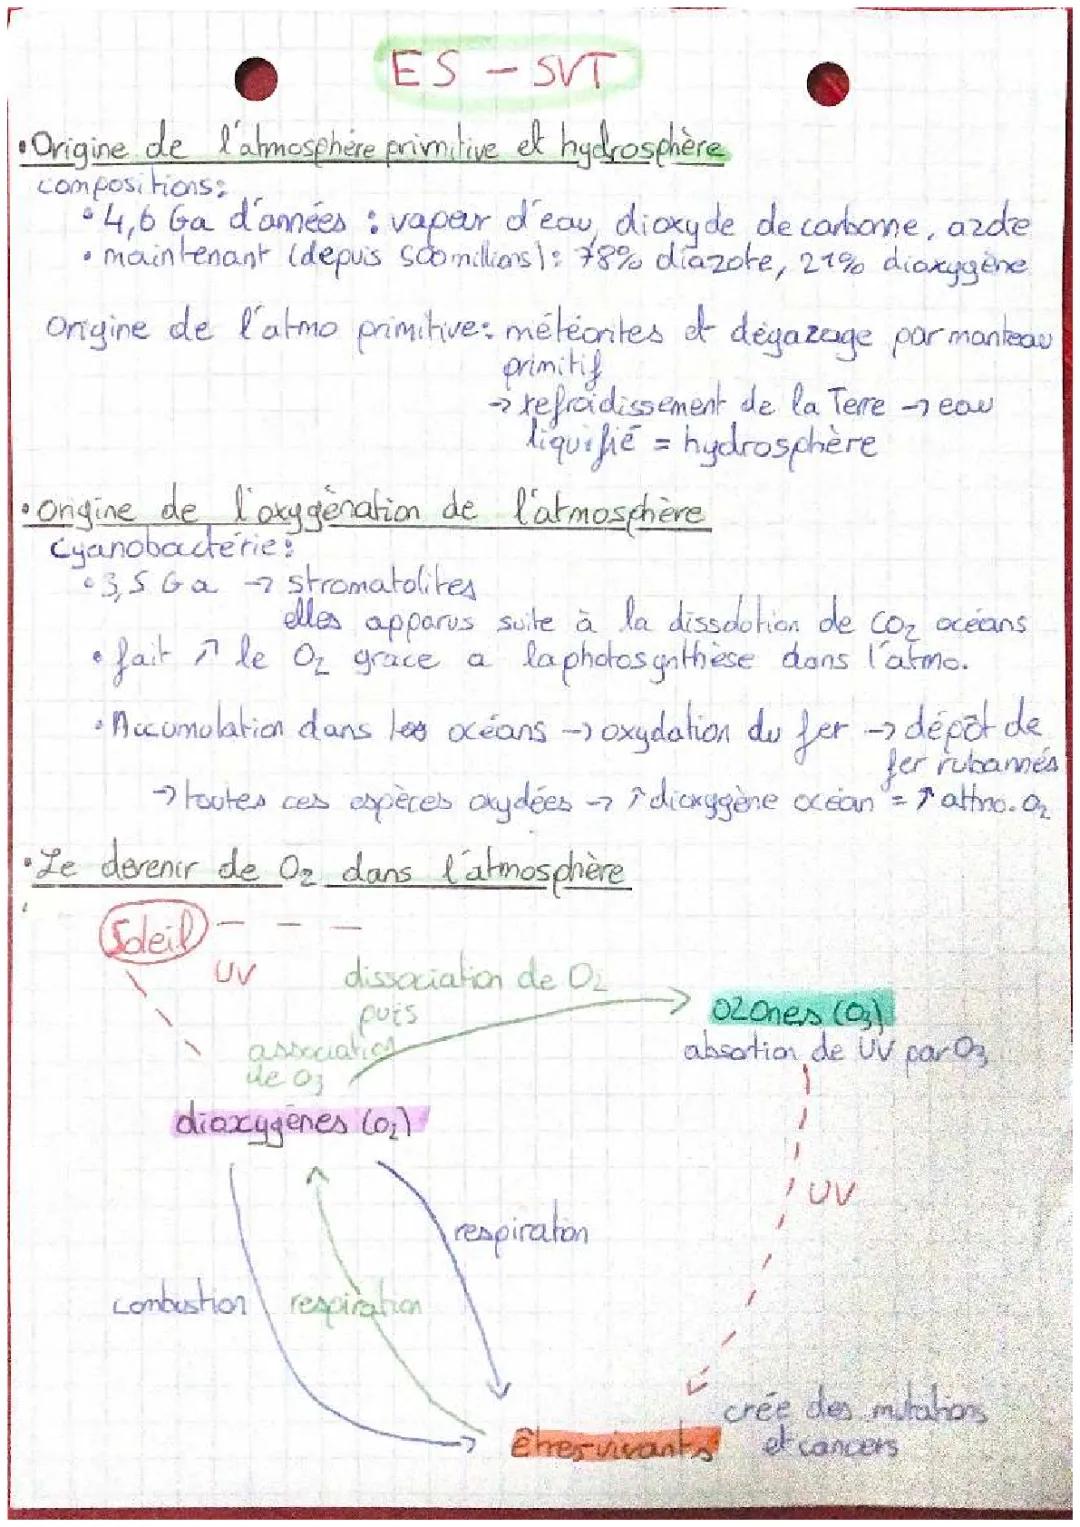 ES - SVT
• Origine de l'atmosphère primitive et hydrosphère
compositions:
• 4,6 Ga d'années : vapeur d'eau, dioxyde de carbonne, azote
• maintenant (depuis 500 millions): 78% diazote, 21% dioxygène
Origine de l'atmo primitive: météorites et dégazage par manteau
primitif
→ refroidissement de la Terre → eau
liquifié = hydrosphère
• Origine de l'oxygénation de l'atmosphère
Cyanobactérie:
• 3,5 Ga → stromatolites
elles apparus suite à la dissolution de CO2 océans
• fait ↗ le O2 grace a la photosynthèse dans l'atmo.
• Accumulation dans les océans → oxydation du fer → dépôt de
fer rubannés
→ toutes ces espèces oxydées → ↑ dioxygène océan = ↑ atmo. O2
• Le devenir de O2 dans l'atmosphère
Soleil
UV
dissociation de O2
puis
association
de O3
ozones (O3)
absortion de UV par O3
dioxygènes (O2)
UV
respiration
combustion
respiration
crée des mutations
êtres vivants
et cancers